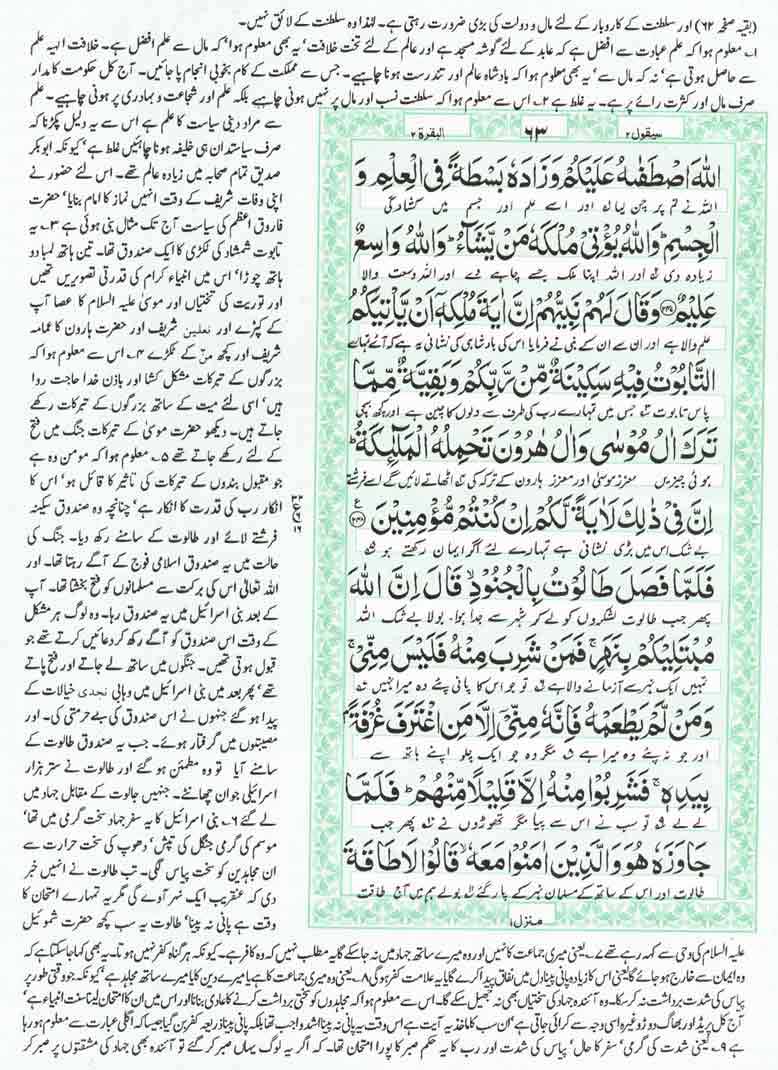 (بقیہ صفحہ ۶۲) اور سلطنت کے کاروبار کے لئے مال و دولت کی بڑی ضرورت رہتی ہے۔ لہٰذا وہ سلطنت کے لائق نہیں۔
۱۔ معلوم ہوا کہ علم عبادت سے افضل ہے کہ عابد کے لئے گوشہ مسجد ہے اور عالم کے لئے تخت خلافت' یہ بھی معلوم ہوا' کہ مال سے علم افضل ہے۔ خلافت الہیہ علم
سے حاصل ہوتی ہے' نہ کہ مال سے' یہ بھی معلوم ہوا کہ بادشاہ عالم اور تندرست ہونا چاہیے۔ جس سے مملکت کے کام بخوبی انجام پا جائیں۔ آج کل حکومت کا مدار
صرف مال اور کثرت رائے پر ہے۔ یہ غلط ہے ۲۔ اس سے معلوم ہوا کہ سلطنت نسب اور مال پر نہیں ہونی چاہیے بلکہ علم اور شجاعت و بہادری پر ہونی چاہیے۔ علم
سیقول ۲
۶۳
البقرة ۲
اللهَ اصْطَفٰىهُ عَلَيْكُمْ وَزَادَهٗ بَسْطَةً فِي الْعِلْمِ وَ
اللہ نے تم پر چن لیا ۱ اور اسے علم اور جسم میں کشادگی
الْجِسْمِ ؕ وَاللهُ يُؤْتِيْ مُلْكَهٗ مَنْ يَّشَآءُ ؕ وَاللهُ وَاسِعٌ
زیادہ دی ۲ اور اللہ اپنا ملک جسے چاہے دے اور اللہ وسعت والا
عَلِيْمٌ ﴿۲۴۷﴾ وَقَالَ لَهُمْ نَبِيُّهُمْ اِنَّ اٰيَةَ مُلْكِهٖٓ اَنْ يَّاْتِيَكُمُ
علم والا ہے اور ان سے ان کے نبی نے فرمایا اس کی بادشاہی کی نشانی یہ ہے کہ آئے تمہارے
التَّابُوْتُ فِيْهِ سَكِيْنَةٌ مِّنْ رَّبِّكُمْ وَبَقِيَّةٌ مِّمَّا
پاس تابوت ۳ جس میں تمہارے رب کی طرف سے دلوں کا چین ہے اور کچھ بچی
تَرَكَ اٰلُ مُوْسٰى وَاٰلُ هٰرُوْنَ تَحْمِلُهُ الْمَلٰٓئِكَةُ ؕ
ہوئی چیزیں معزز موسیٰ اور معزز ہارون کے ترکہ کی ۴ اٹھاتے لائیں گے اسے فرشتے
اِنَّ فِيْ ذٰلِكَ لَاٰيَةً لَّكُمْ اِنْ كُنْتُمْ مُّؤْمِنِيْنَ ﴿۲۴۸﴾ ع
بے شک اس میں بڑی نشانی ہے تمہارے لئے اگر ایمان رکھتے ہو ۵
فَلَمَّا فَصَلَ طَالُوْتُ بِالْجُنُوْدِ ۙ قَالَ اِنَّ اللهَ
پھر جب طالوت لشکروں کو لے کر شہر سے جدا ہوا، بولا بے شک اللہ
مُبْتَلِيْكُمْ بِنَهَرٍ ۚ فَمَنْ شَرِبَ مِنْهُ فَلَيْسَ مِنِّيْ ۚ
تمہیں ایک نہر سے آزمانے والا ہے ۶ تو جو اس کا پانی پئے وہ میرا نہیں ۷
وَمَنْ لَّمْ يَطْعَمْهُ فَاِنَّهٗ مِنِّيْٓ اِلَّا مَنِ اغْتَرَفَ غُرْفَةًۢ
اور جو نہ پئے وہ میرا ہے ۸ مگر وہ جو ایک چلو اپنے ہاتھ سے
بِيَدِهٖ ۚ فَشَرِبُوْا مِنْهُ اِلَّا قَلِيْلًا مِّنْهُمْ ؕ فَلَمَّا
لے لے ۹ تو سب نے اس سے پیا مگر تھوڑوں نے ۱۰ پھر جب
جَاوَزَهٗ هُوَ وَالَّذِيْنَ اٰمَنُوْا مَعَهٗ ۙ قَالُوْا لَا طَاقَةَ
طالوت اور اس کے ساتھ کے مسلمان نہر کے پار گئے بولے ہم میں آج طاقت
منزل ۱
سے مراد دینی سیاست کا علم ہے اس سے یہ دلیل پکڑنا کہ
صرف سیاستدان ہی خلیفہ ہونا چاہئیں غلط ہے' کیونکہ ابوبکر
صدیق تمام صحابہ میں زیادہ عالم تھے۔ اس لئے حضور نے
اپنی وفات شریف کے وقت انہیں نماز کا امام بنایا' حضرت
فاروق اعظم کی سیاست آج تک مثال بنی ہوئی ہے ۳۔ یہ
تابوت شمشاد کی لکڑی کا ایک صندوق تھا۔ تین ہاتھ لمبا دو
ہاتھ چوڑا' اس میں انبیاء کرام کی قدرتی تصویریں تھیں
اور توریت کی تختیاں اور موسیٰ علیہ السلام کا عصا آپ
کے کپڑے اور نعلین شریف اور حضرت ہارون کا عمامہ
شریف اور کچھ منّ کے ٹکڑے ۴۔ اس سے معلوم ہوا کہ
بزرگوں کے تبرکات مشکل کشا اور باذن خدا حاجت روا
ہیں' اسی لئے میت کے ساتھ بزرگوں کے تبرکات رکھے
جاتے ہیں۔ دیکھو حضرت موسیٰ کے تبرکات جنگ میں فتح
کے لئے رکھے جاتے تھے ۵۔ معلوم ہوا کہ مومن وہ ہے
جو مقبول بندوں کے تبرکات کی تاثیر کا قائل ہو' اس کا
انکار رب کی قدرت کا انکار ہے' چنانچہ وہ صندوق سکینہ
فرشتے لائے اور طالوت کے سامنے رکھ دیا۔ جنگ کی
حالت میں یہ صندوق اسلامی فوج کے آگے رہتا تھا۔ اور
اللہ تعالیٰ اس کی برکت سے مسلمانوں کو فتح بخشتا تھا۔ آپ
کے بعد بنی اسرائیل میں یہ صندوق رہا۔ وہ لوگ ہر مشکل
کے وقت اس صندوق کو آگے رکھ کر دعائیں کرتے تھے جو
قبول ہوتی تھیں۔ جنگوں میں ساتھ لے جاتے اور فتح پاتے
تھے' پھر بعد میں بنی اسرائیل میں وہابی نجدی خیالات کے
پیدا ہو گئے جنہوں نے اس صندوق کی بے حرمتی کی۔ اور
مصیبتوں میں گرفتار ہوئے۔ جب یہ صندوق طالوت کے
سامنے آیا تو وہ مطمئن ہو گئے اور طالوت نے ستر ہزار
اسرائیلی جوان چھانٹے۔ جنہیں جالوت کے مقابل جہاد میں
لے گئے ۶۔ بنی اسرائیل کا یہ سفر جہاد سخت گرمی میں تھا'
موسم کی گرمی جنگل کی تپش' دھوپ کی سخت حرارت سے
ان مجاہدین کو سخت پیاس لگی۔ تب طالوت نے انہیں خبر
دی کہ عنقریب ایک نہر آوے گی مگر یہ تمہارے امتحان کا
وقت ہے پانی نہ پینا' طالوت یہ سب کچھ حضرت شموئیل
علیہ السلام کی وحی سے کہہ رہے تھے ۷۔ یعنی میری جماعت کا نہیں اور وہ میرے ساتھ جہاد میں نہ جا سکے گا یہ مطلب نہیں کہ وہ کافر ہے۔ کیونکہ ہر گناہ کفر نہیں ہوتا۔ یہ بھی کہا جا سکتا ہے کہ
وہ ایمان سے خارج ہو جائے گا یعنی اس کا زیادہ پانی پینا دل میں نفاق پیدا کرے گا یا یہ علامت کفر ہو گی ۸۔ یعنی وہ میری جماعت کا ہے یا میرے دین کا یا میرے ساتھ مجاہد ہے' کیونکہ جو وقتی طور پر
پیاس کی شدت برداشت نہ کر سکا۔ وہ آئندہ جہاد کی سختیاں بھی نہ جھیل سکے گا۔ اس سے معلوم ہوا کہ مجاہدوں کو سختی برداشت کرنے کا عادی بنانا اور اس میں ان کا امتحان لینا سنت انبیاء ہے'
آج کل پریڈ اور بھاگ دوڑ وغیرہ اسی وجہ سے کرائی جاتی ہے' ان سب کا ماخذ یہ آیت ہے اس وقت یہ پانی نہ پینا اشد واجب تھا بلکہ پانی پینا ذریعہ کفر بن گیا جیسا کہ اگلی عبارت سے معلوم ہو رہا
ہے ۹۔ یعنی شدت کی گرمی' سفر کا حال' پیاس کی شدت اور رب کا یہ حکم صبر کا پورا امتحان تھا۔ کہ اگر یہ لوگ یہاں صبر کر گئے تو آئندہ بھی جہاد کی مشقتوں پر صبر کر